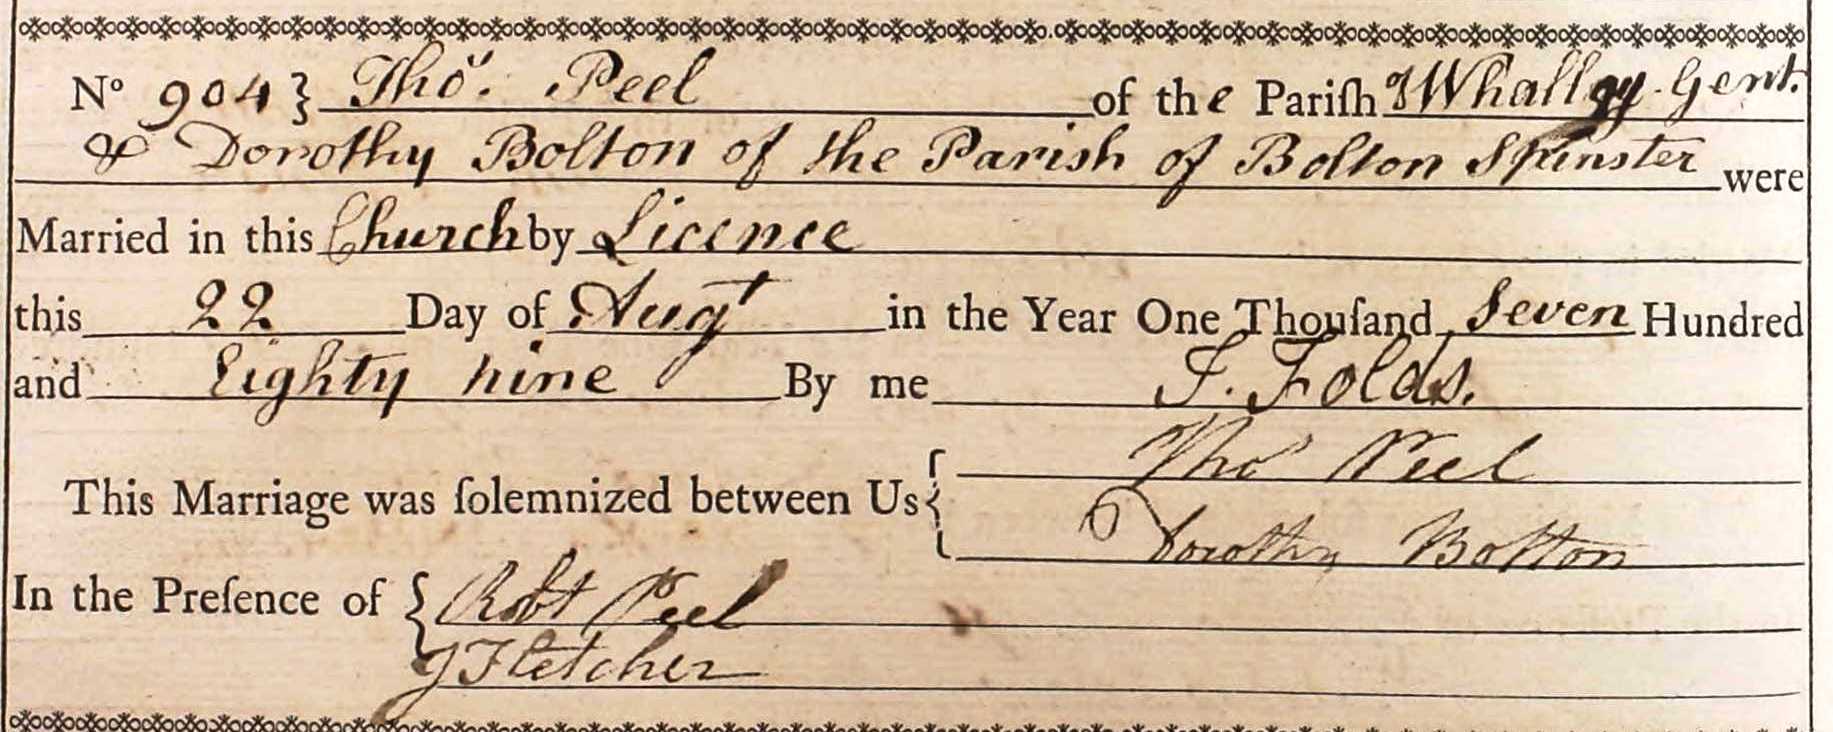 No 904} Thos. Peel of the Pariſh of Whalley. Gent.
& Dorothy Bolton of the Parish of Bolton Spinster were
Married in this Church by Licence
this 22 Day of Augt in the Year One Thouſand Seven Hundred
and Eighty nine By me J. Folds.
This Marriage was ſolemnized between Us { Thos Peel
Dorothy Bolton
In the Preſence of { Robt Peel
J Fletcher